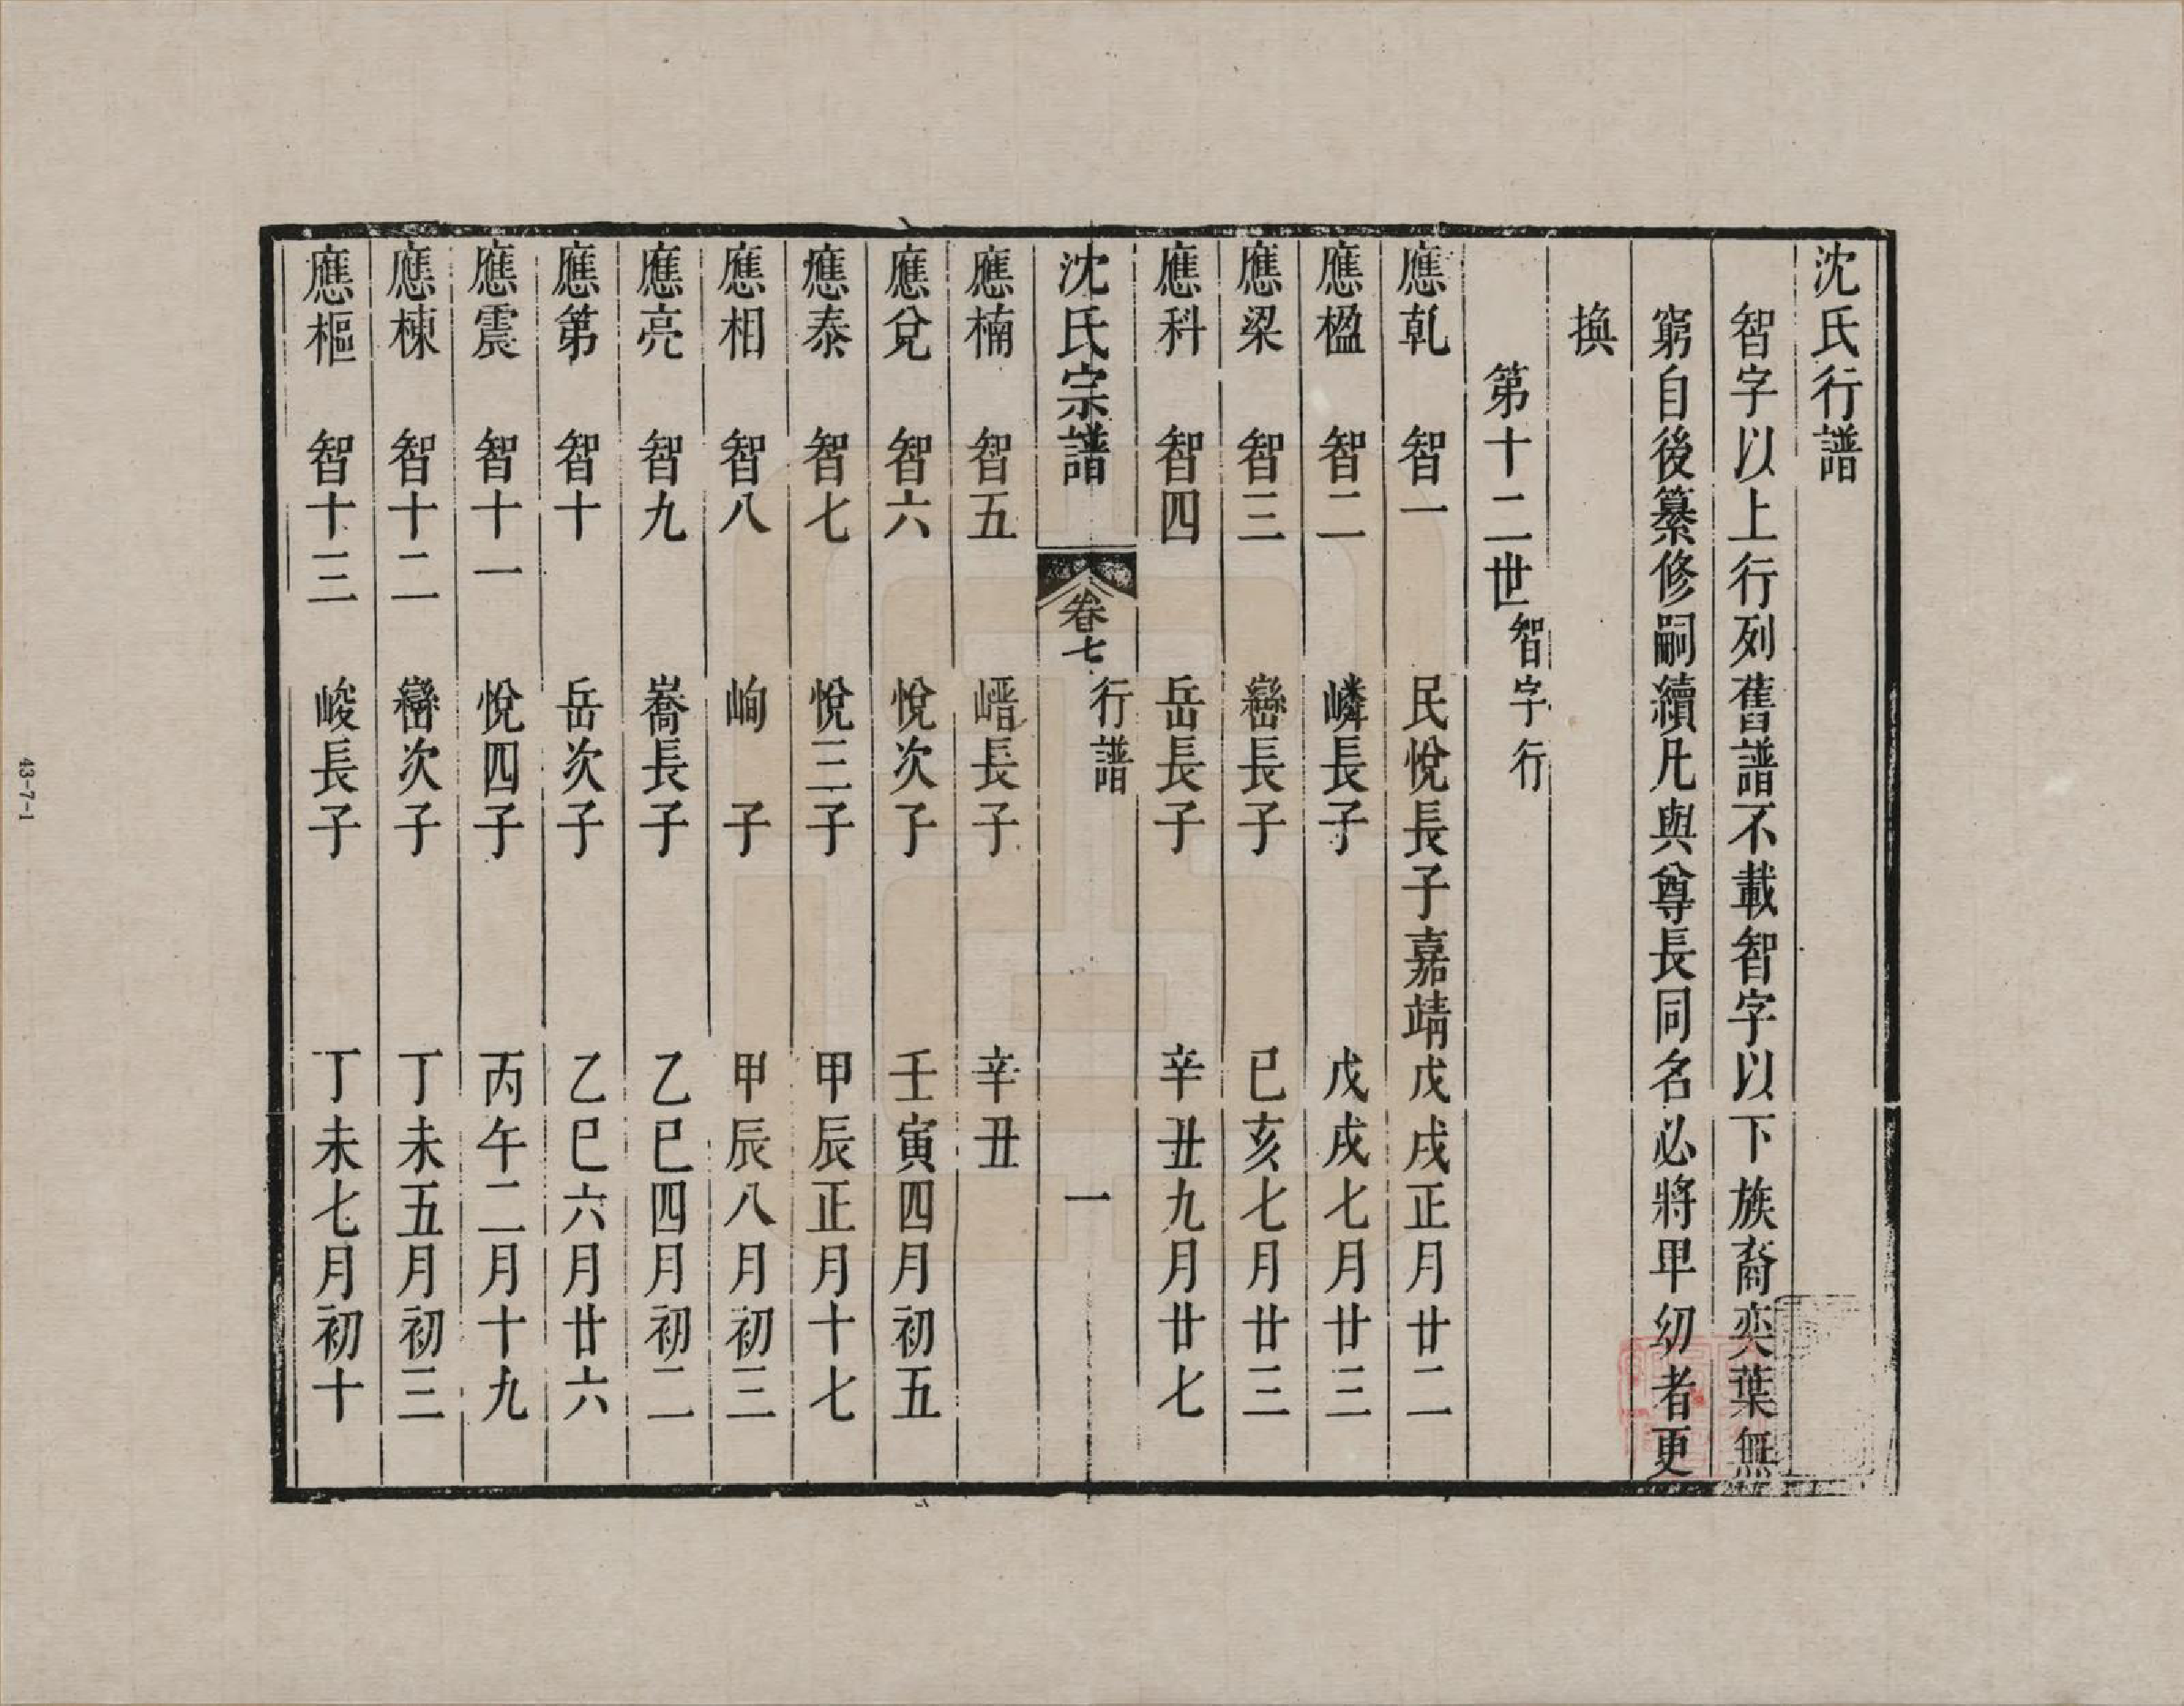 沈氏行譜
智字以上行列舊譜不載智字以下族裔奕葉無
窮自後纂修嗣續凡與尊長同名必將卑幼者更
換
第十二世智字行
應乹 智一 民悅長子嘉靖戊戌正月廿二
應楹 智二 嶙長子 戊戌七月廿三
應梁 智三 巒長子 已亥七月廿三
應科 智四 岳長子 辛丑九月廿七
沈氏宗譜 卷七 行譜 一
應楠 智五 㟴長子 辛丑
應兌 智六 悅次子 壬寅四月初五
應泰 智七 悅三子 甲辰正月十七
應相 智八 峋 子 甲辰八月初三
應亮 智九 嵩長子 乙巳四月初二
應第 智十 岳次子 乙巳六月廿六
應震 智十一 悅四子 丙午二月十九
應棟 智十二 巒次子 丁未五月初三
應樞 智十三 峻長子 丁未七月初十
43-7-1